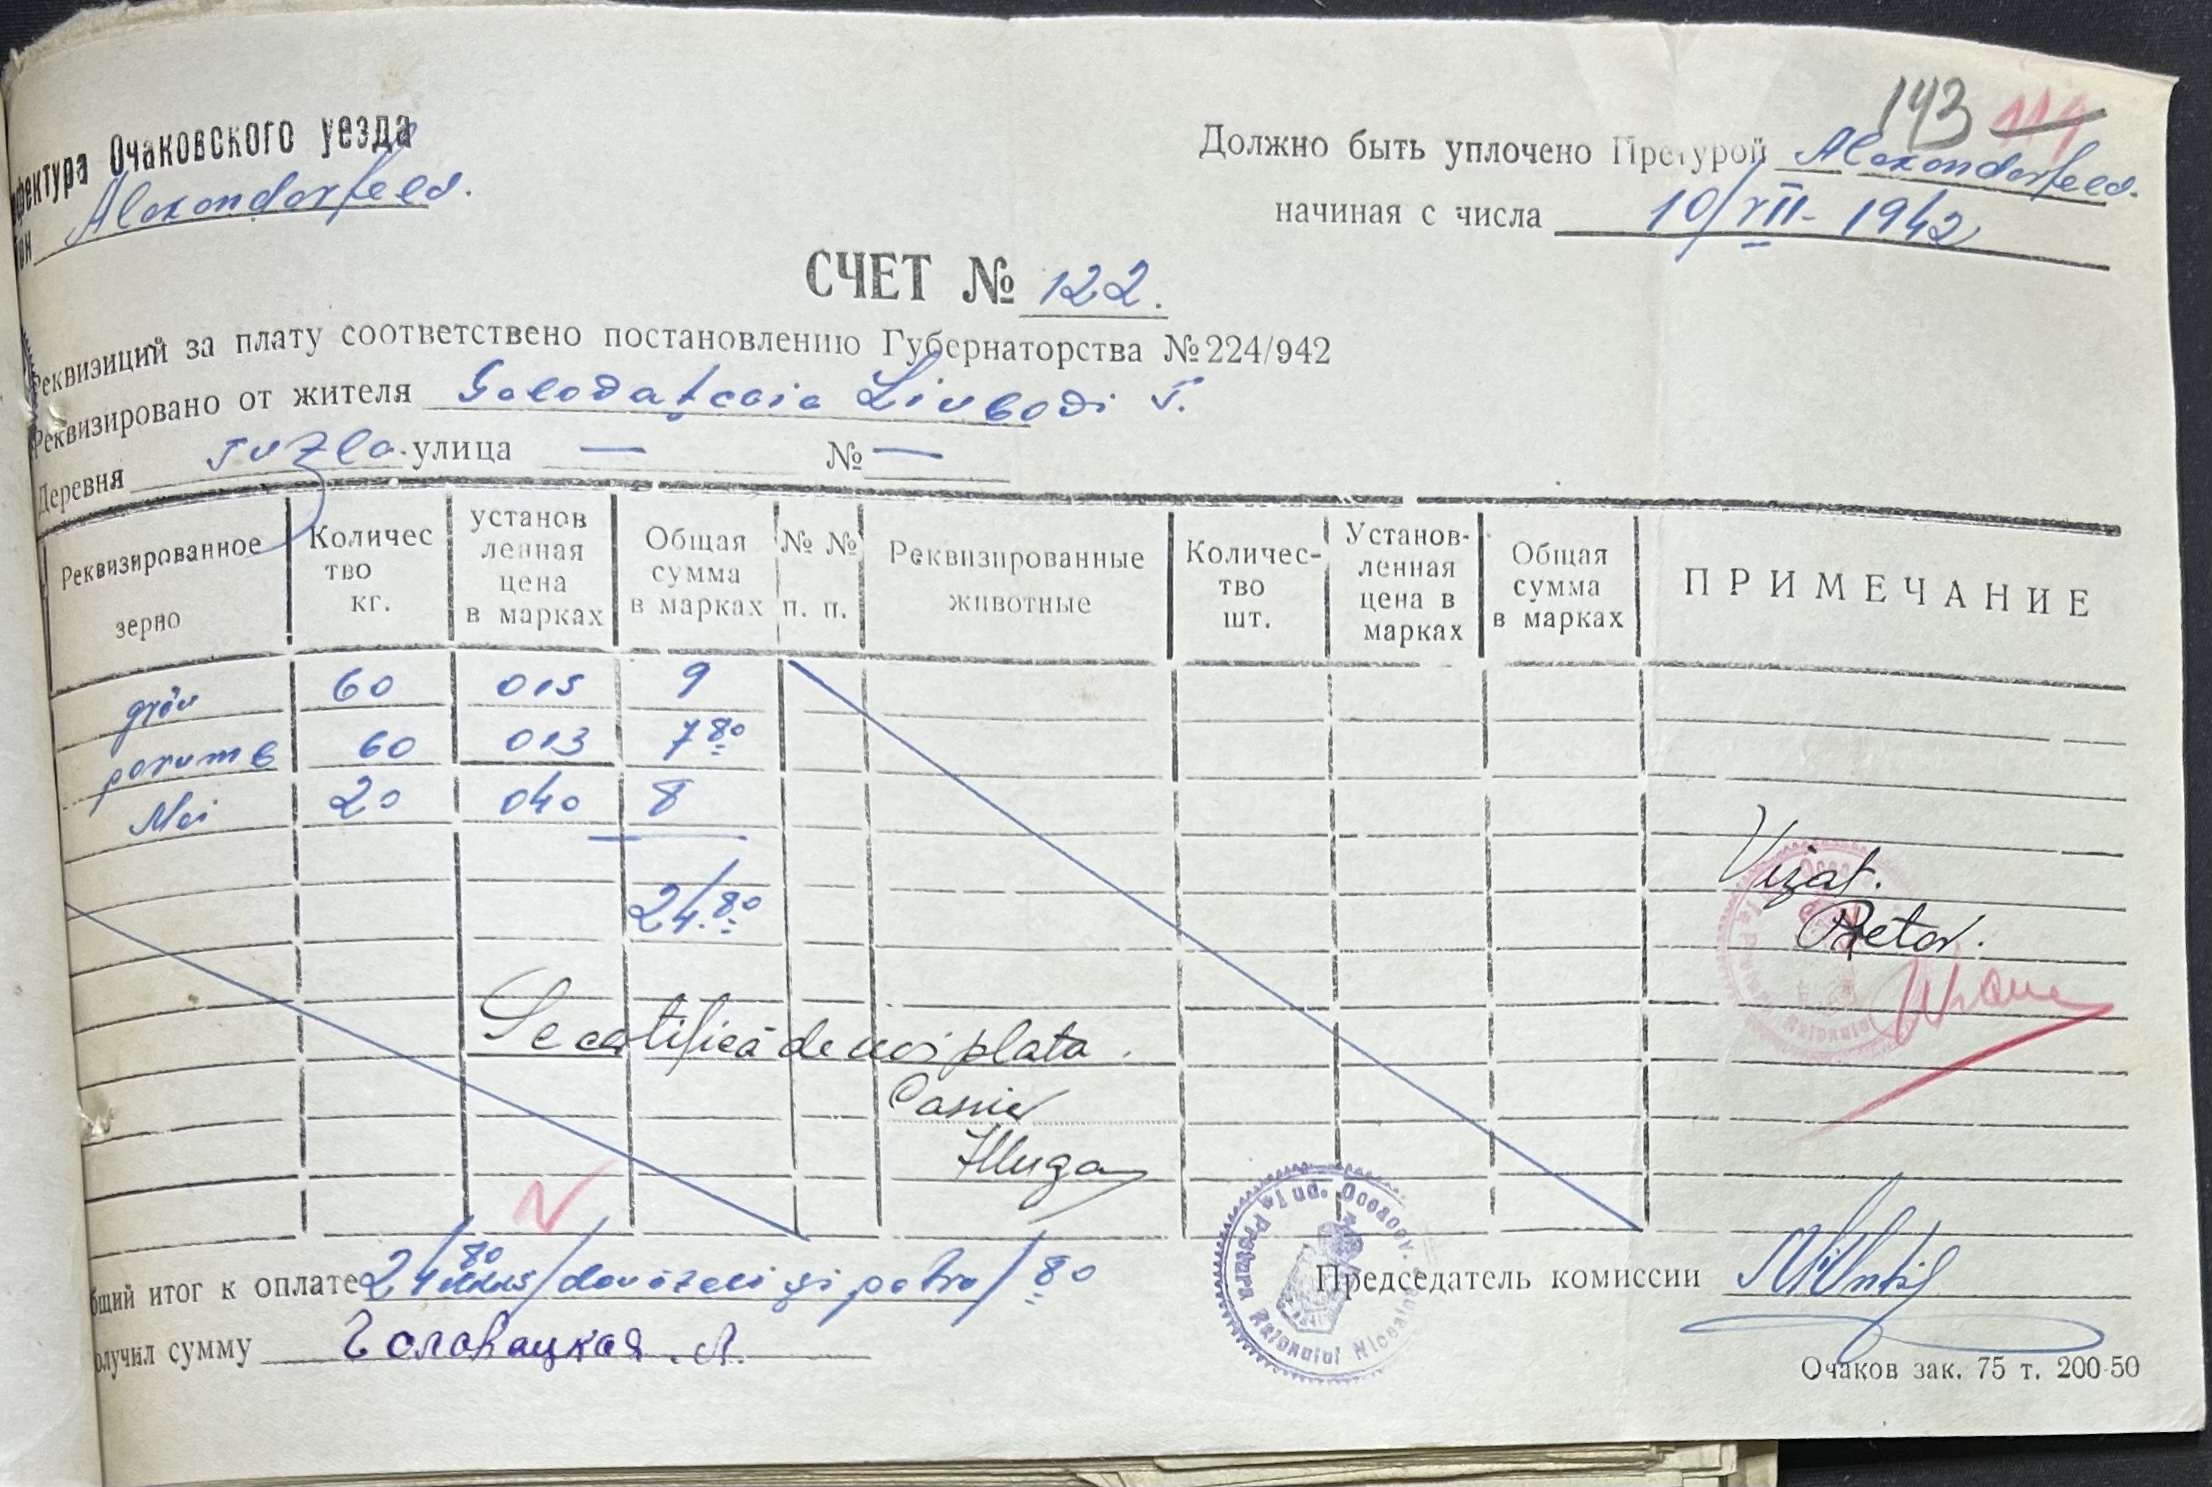 143 114
фектура Очаковского уезда
Должно быть уплочено Претурой Alexandorfeld.
он Alexandorfeld.
начиная с числа 10/VII-1942
СЧЕТ № 122.
Реквизиций за плату соответствено постановлению Губернаторства № 224/942
Реквизировано от жителя Golodaţcaia Liubodi T.
Деревня Tuzla. улица — № —
Реквизированное зерно | Количес тво кг. | установ ленная цена в марках | Общая сумма в марках | № № п. п. | Реквизированные животные | Количес- тво шт. | Установ- ленная цена в марках | Общая сумма в марках | ПРИМЕЧАНИЕ
grâu 60 015 9
porumb 60 013 7 80
Mei 20 040 8
24.80
Vizat.
Pretor.
Se certifică de noi plata.
Casier
бщий итог к оплате 24 80 /douăzeci şi patru/ 80
Председатель комиссии
олучил сумму Головацкая. Л.
Pretura Raionului Jud. Oceacov.
Очаков зак. 75 т. 200-50